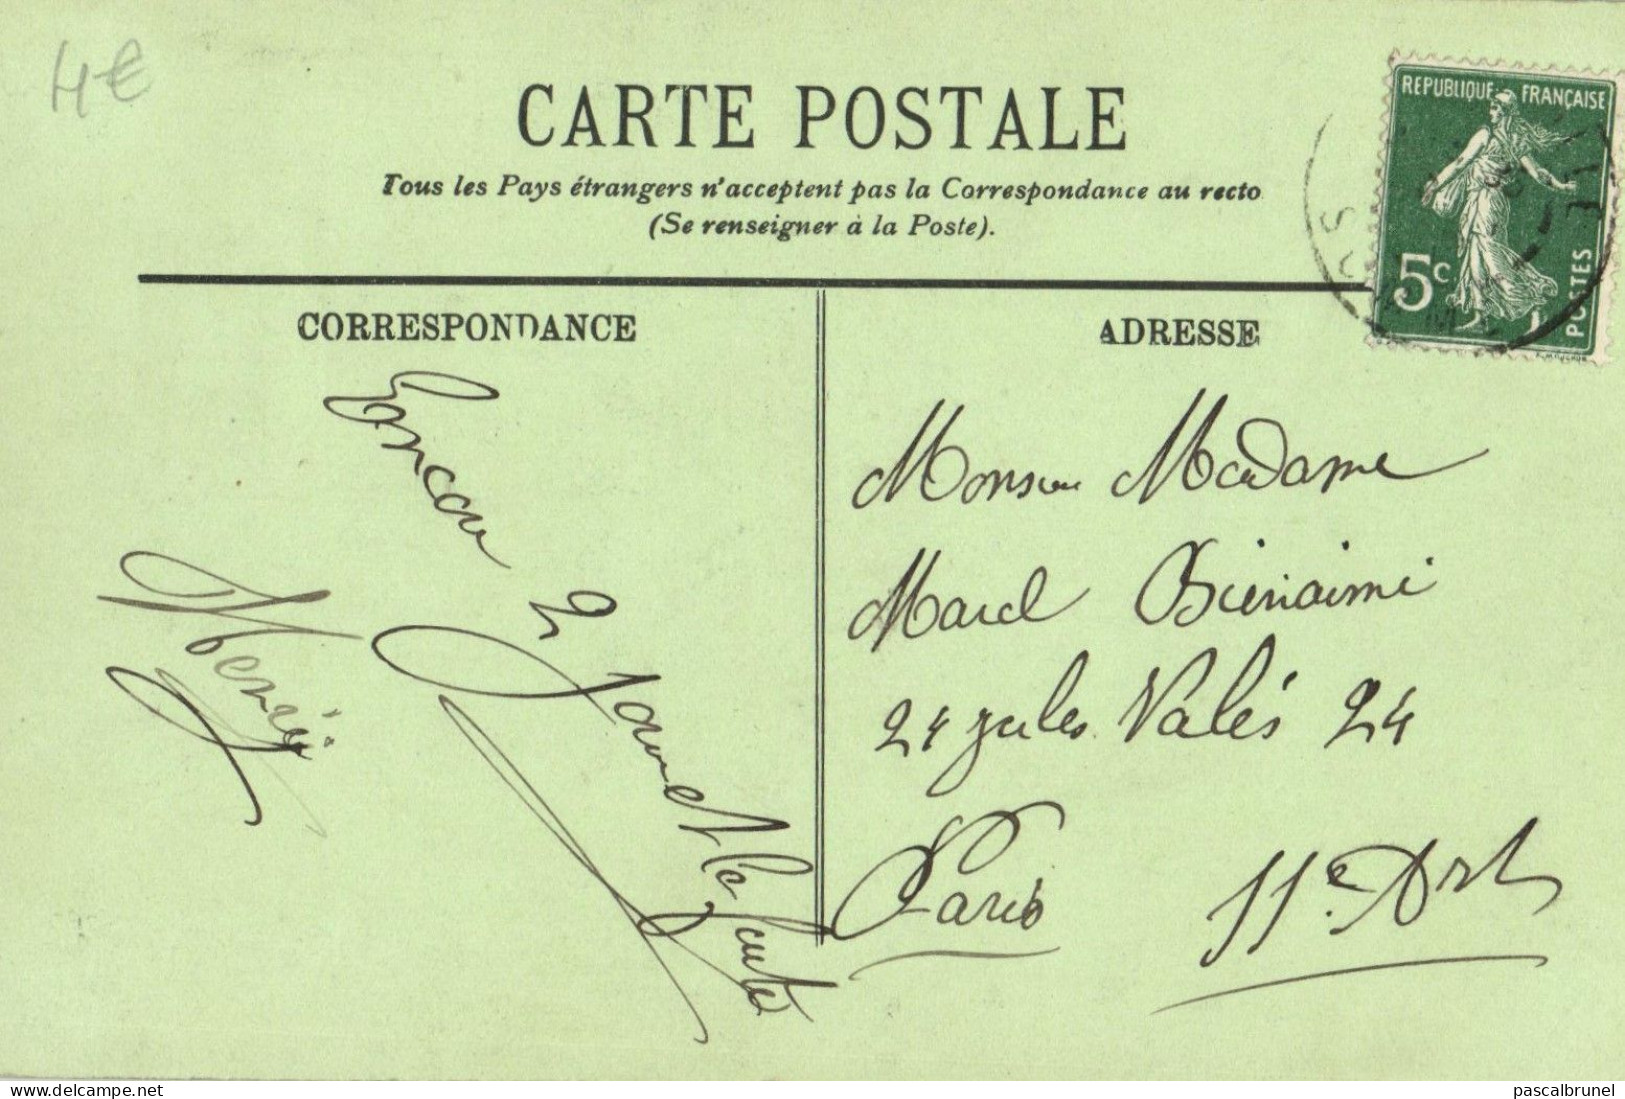 4€
CARTE POSTALE
Tous les Pays étrangers n'acceptent pas la Correspondance au recto
(Se renseigner à la Poste).
REPUBLIQUE FRANÇAISE
5c
POSTES
CORRESPONDANCE
ADRESSE
2 Jour et la
Monsieur Madame
Marcel Bienaimé
24 jules Valés 24
Paris 11e. Art
delcampe.net
pascalbrunel